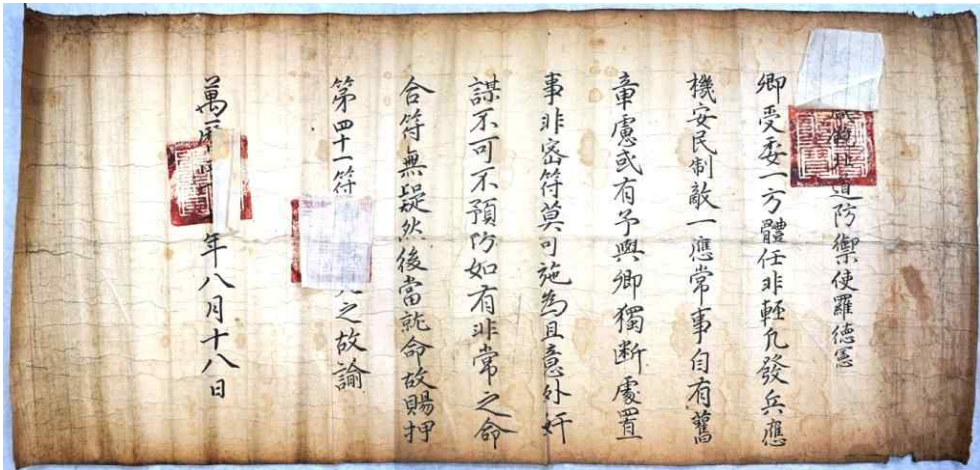 道防禦使羅德憲
卿受委一方體任非輕凡發兵應
機安民制敵一應常事自有舊
章慮或有予與卿獨斷處置
事非密符莫可施為且意外奸
謀不可不預防如有非常之命
合符無疑然後當就命故賜押
第四十一符之故諭
萬曆年八月十八日